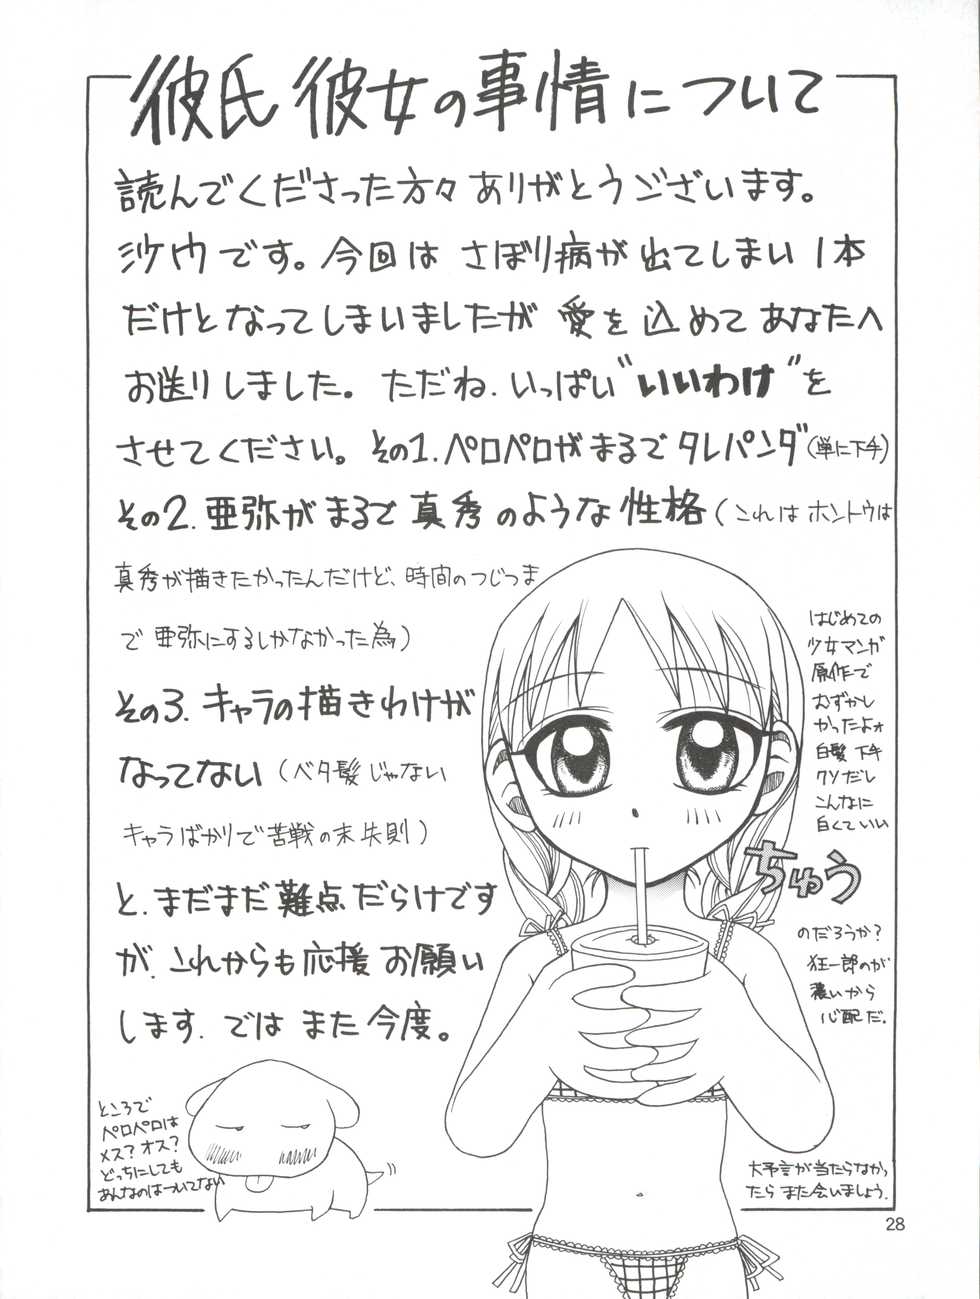 彼氏彼女の事情について
読んでくださった方々ありがとうございます。
沙ウです。今回は さぼり病が出てしまい1本
だけとなってしまいましたが 愛を込めてあなたへ
お送りしました。ただね、いっぱい"いいわけ"を
させてください。その1.ペロペロがまるでタレパンダ(単に下手)
その2.亜弥がまるで真秀のような性格(これはホントウは
真秀が描きたかったんだけど、時間のつじつま
で 亜弥にするしかなかった為)
その3.キャラの描きわけが
なってない(ベタ髪じゃない
キャラばかりで苦戦の末失則)
と、まだまだ難点だらけです
が、これからも応援お願い
します。では また今度。
はじめての
少女マンガ
原作で
むずかし
かったよォ
白髪 下手
クソだし
こんなに
白くていい
のだろうか?
狂一郎のが
濃いから
心配だ。
ちゅう
ところで
ペロペロは
メス?オス?
どっちにしても
あんなのはついてない
大予言が当たらなかっ
たら また会いましょう。
28